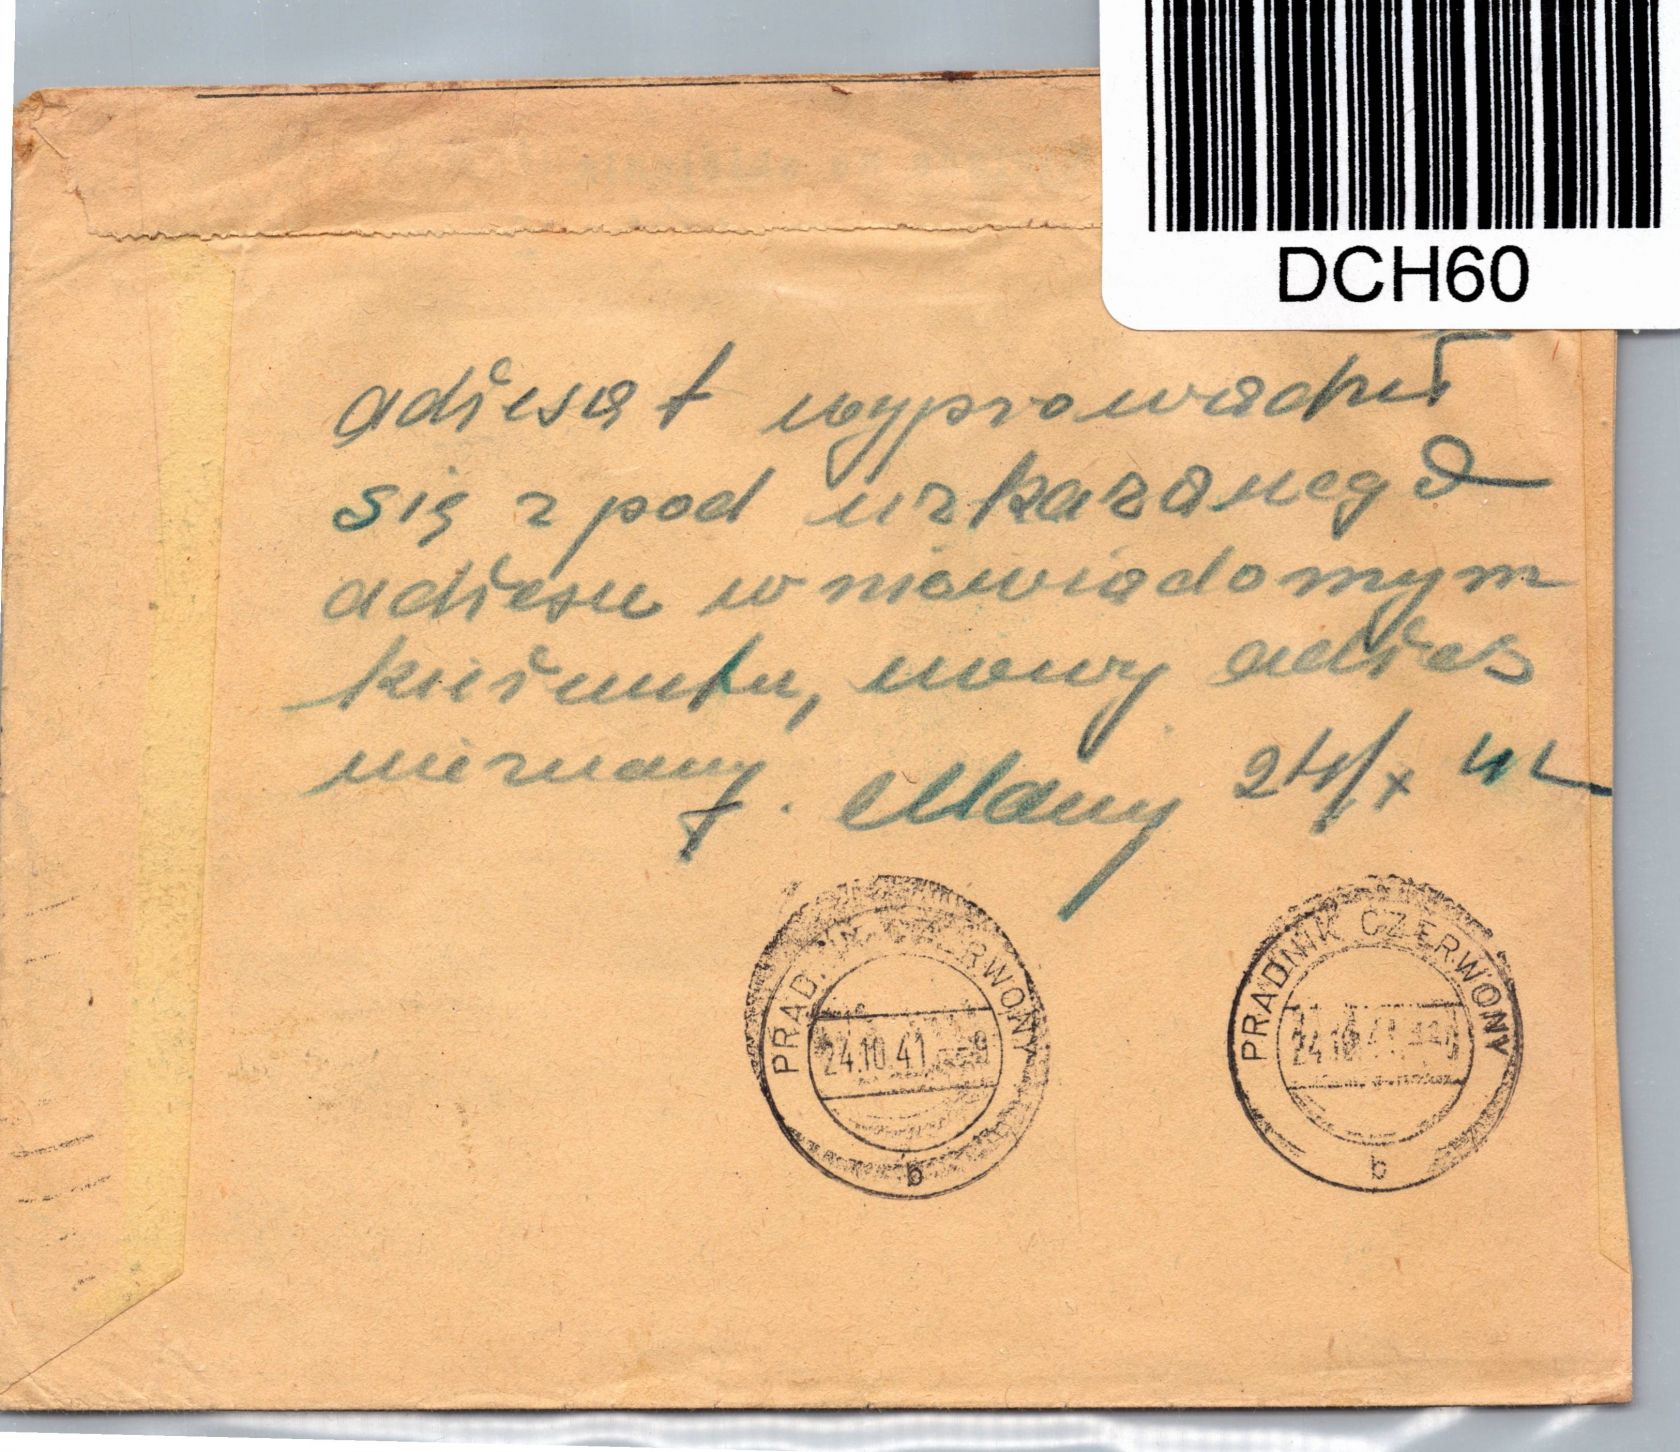 DCH60
adresat wyprowadził
się z pod wskazanego
adresu w niewiadomym
kierunku, nowy adres
nieznany. 24/X 41
PRĄDNIK CZERWONY
24.10.41
b
PRĄDNIK CZERWONY
24.10.41
b